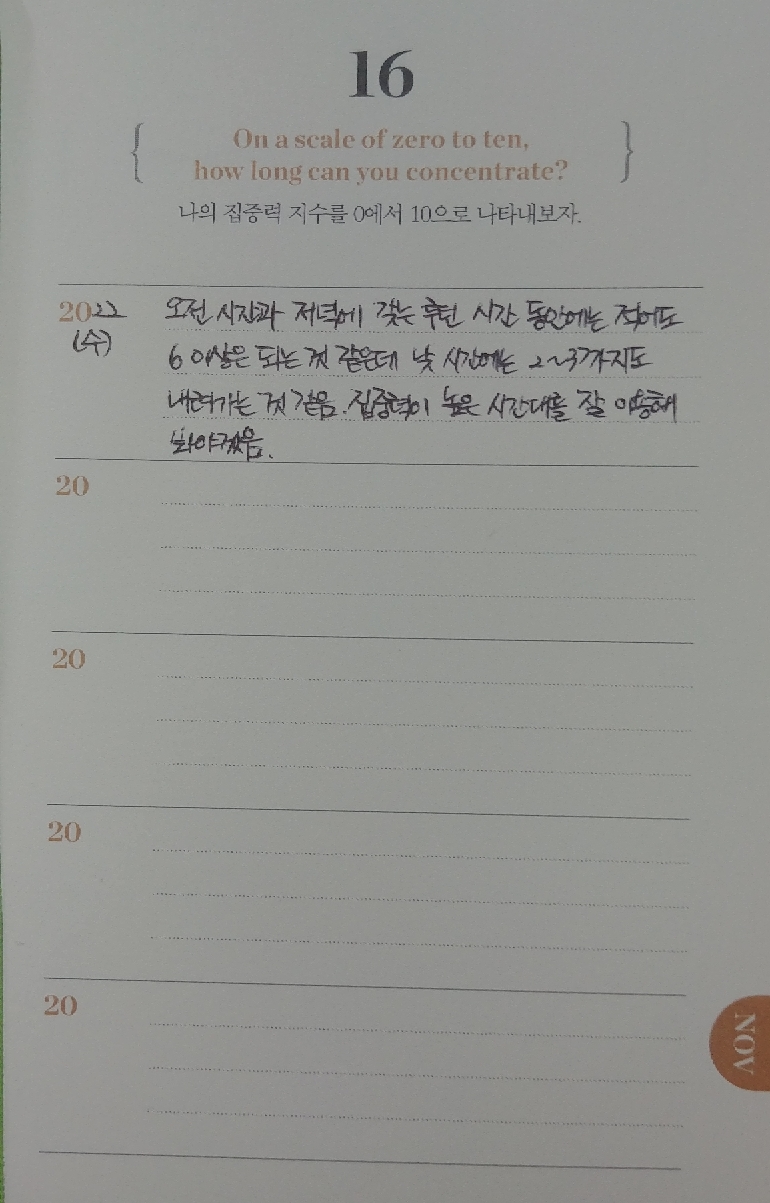 16
On a scale of zero to ten,
how long can you concentrate?
나의 집중력 지수를 0에서 10으로 나타내보자.
2022 오전 시간과 저녁에 갖는 루틴 시간 동안에는 적어도
(수) 6 이상은 되는 것 같은데 낮 시간에는 2~3까지도
내려가는 것 같음. 집중력이 높은 시간대를 잘 이용해
봐야겠음.
20
20
20
20
NOV